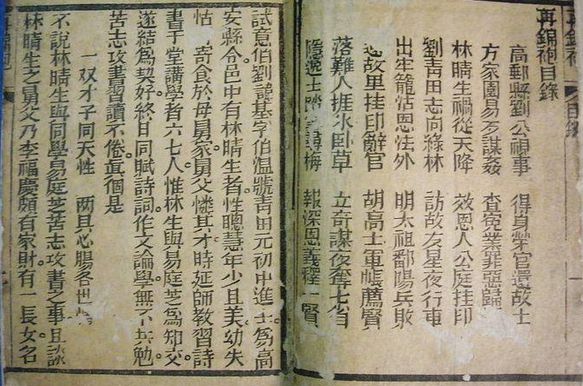 再錦袍 目錄
再錦袍目錄
高郵縣劉公視事 得身榮官還故土
方家園易芝謀姦 查冤業罪惡歸
林晴生禍從天降 效恩人公庭挂印
劉青田志尚綠林 訪故友星夜行車
出牢籠恬恩性外 明太祖鄱陽兵敗
故里挂印辭官 胡高士軍帳薦賢
落難人捱氷卧草 立奇謀夜奪七省
隱逸士 尋梅 報深恩義釋一賢
試意伯劉諱基字伯溫號青田元初中進士爲高
安縣令邑中有林晴生者性聰慧年少且美幼失
怙 寄食於母舅家舅父憐其才時延師教習詩
書于堂講學者六七人惟林生與易庭芝爲知交
遂結爲契好終日同賦詩詞作文論學無不共勉
苦志攻書習讀不倦眞個是
一双才子同天性 兩具心腸各世
不說林晴生與同學易庭芝苦志攻書之事且談
林晴生之舅父乃李福慶頗有家財有一長女名
再錦袍